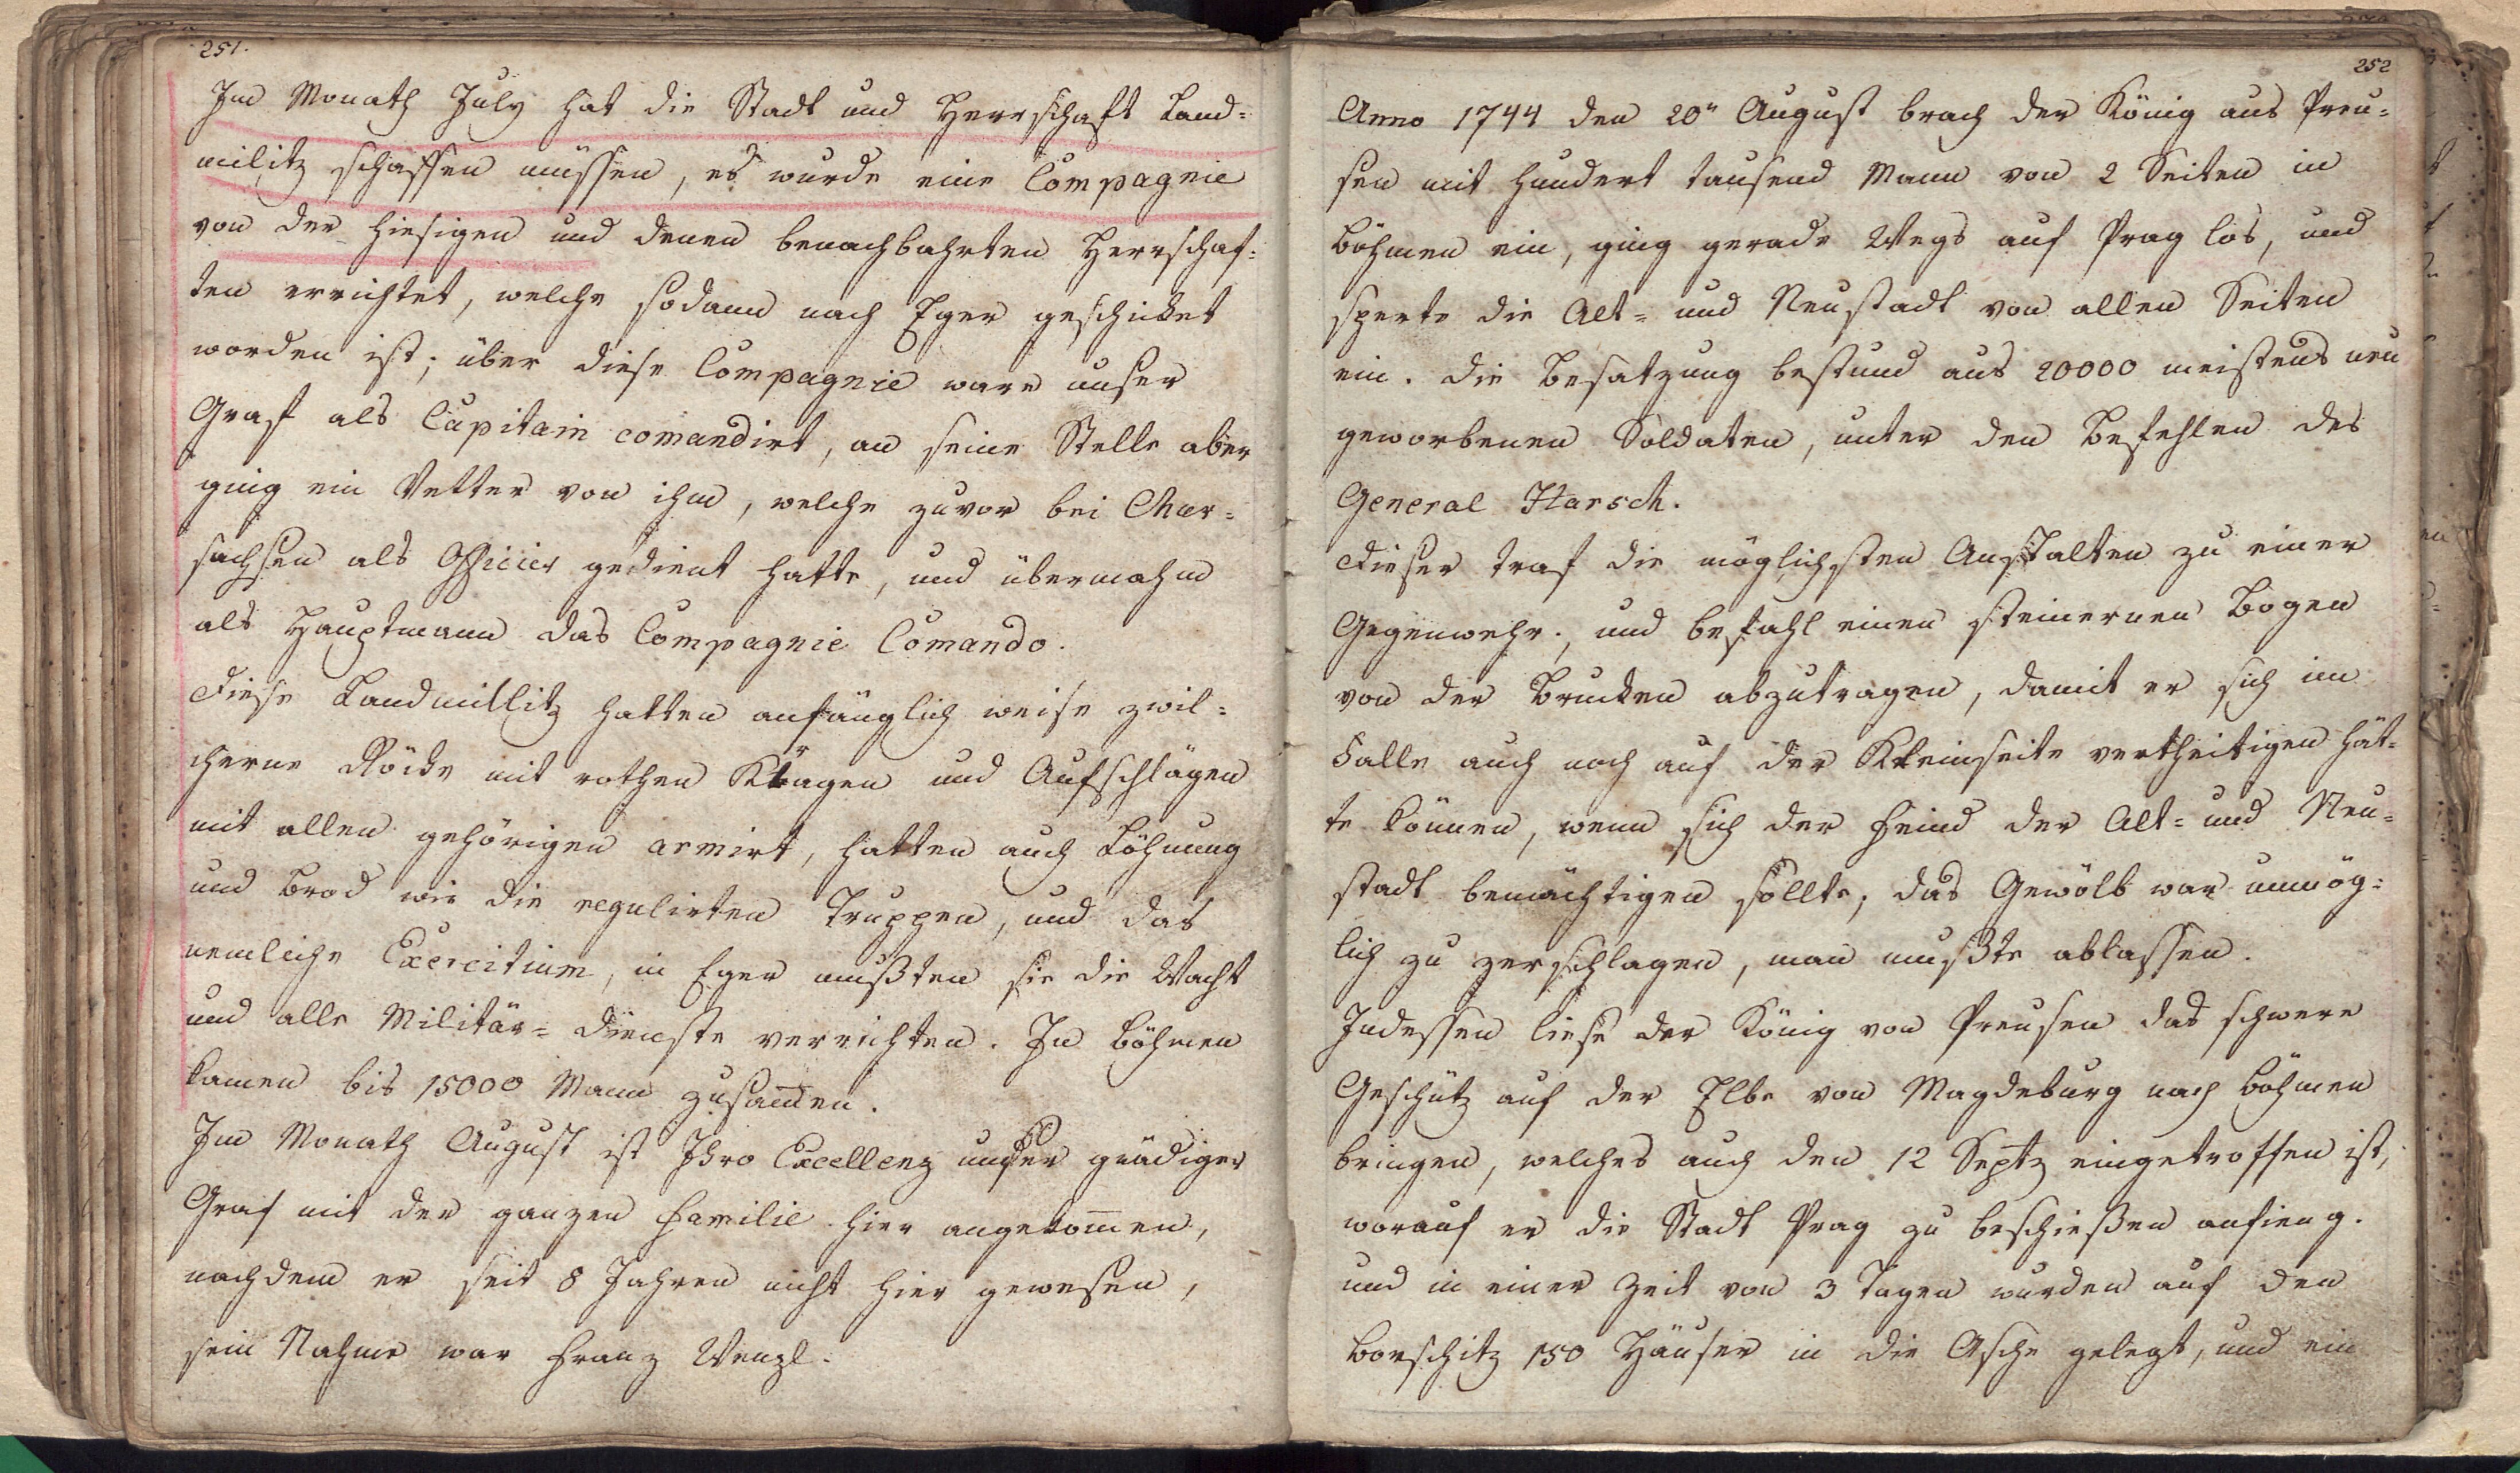 251.
Im Monath July hat die Stadt und Herrschaft Land=
militz schaffen müssen, es wurde eine Compagnie
von der hiesigen und denen benachbahrten Herrschaf=
ten errichtet, welche sodann nach Eger geschicket
worden ist; über diese Compagnie ware unser
Graf als Capitain comandirt, an seine Stelle aber
ging ein Vetter von ihm, welche zuvor bei Chur=
sachsen als Officier gedient hatte, und übernahm
als Hauptmann das Compagnie Comando.
Diese Landmillitz hatten anfänglich weise zwil=
cherne Röcke mit rothen Krägen und Aufschlägen
mit allen gehörigen armirt, hatten auch Löhnung
und Brod wie die regulirten Truppen, und das
nemleiche Exercitium, in Eger mußten sie die Wacht
und alle Militär= Dienste verrichten. In Böhmen
kamen bis 15000 Mann zusam̅en.
Im Monath August ist Ihro Excellenz unser gnädiger
Graf mit der ganzen Familie hier angekom̅en,
nachdem er seit 8 Jahren nicht hier gewesen,
sein Nahme war Franz Wenzl.
252
Anno 1744 den 20n August brach der König aus Preu=
sen mit hundert tausend Mann von 2 Seiten in
Böhmen ein, ging gerade Wegs auf Prag los, und
sperte die Alt= und Neustadt von allen Seiten
ein. Die Besatzung bestund aus 20000 meistens neu
geworbenen Soldaten, unter den Befehlen des
General Harsch.
Dieser traf die möglichsten Anstalten zu einer
Gegenwehr, und befahl einen steinernen Bogen
von der Brucken abzutragen, damit er sich im
Falle auch noch auf der Kleinseite vertheitigen hät=
te können, wenn sich der Feind der Alt= und Neu=
stadt bemächtigen sollte; das Gewölb war unmög=
lich zu zerschlagen, man mußte ablassen.
Indessen liese der König von Preusen das schwere
Geschütz auf der Elbe von Magdeburg nach Böhmen
bringen, welches auch den 12 Septz eingetroffen ist,
worauf er die Stadt Prag zu beschießen anfieng.
und in einer Zeit von 3 Tagen wurden auf den
Borschitz 150 Häuser in die Asche gelegt, und ein